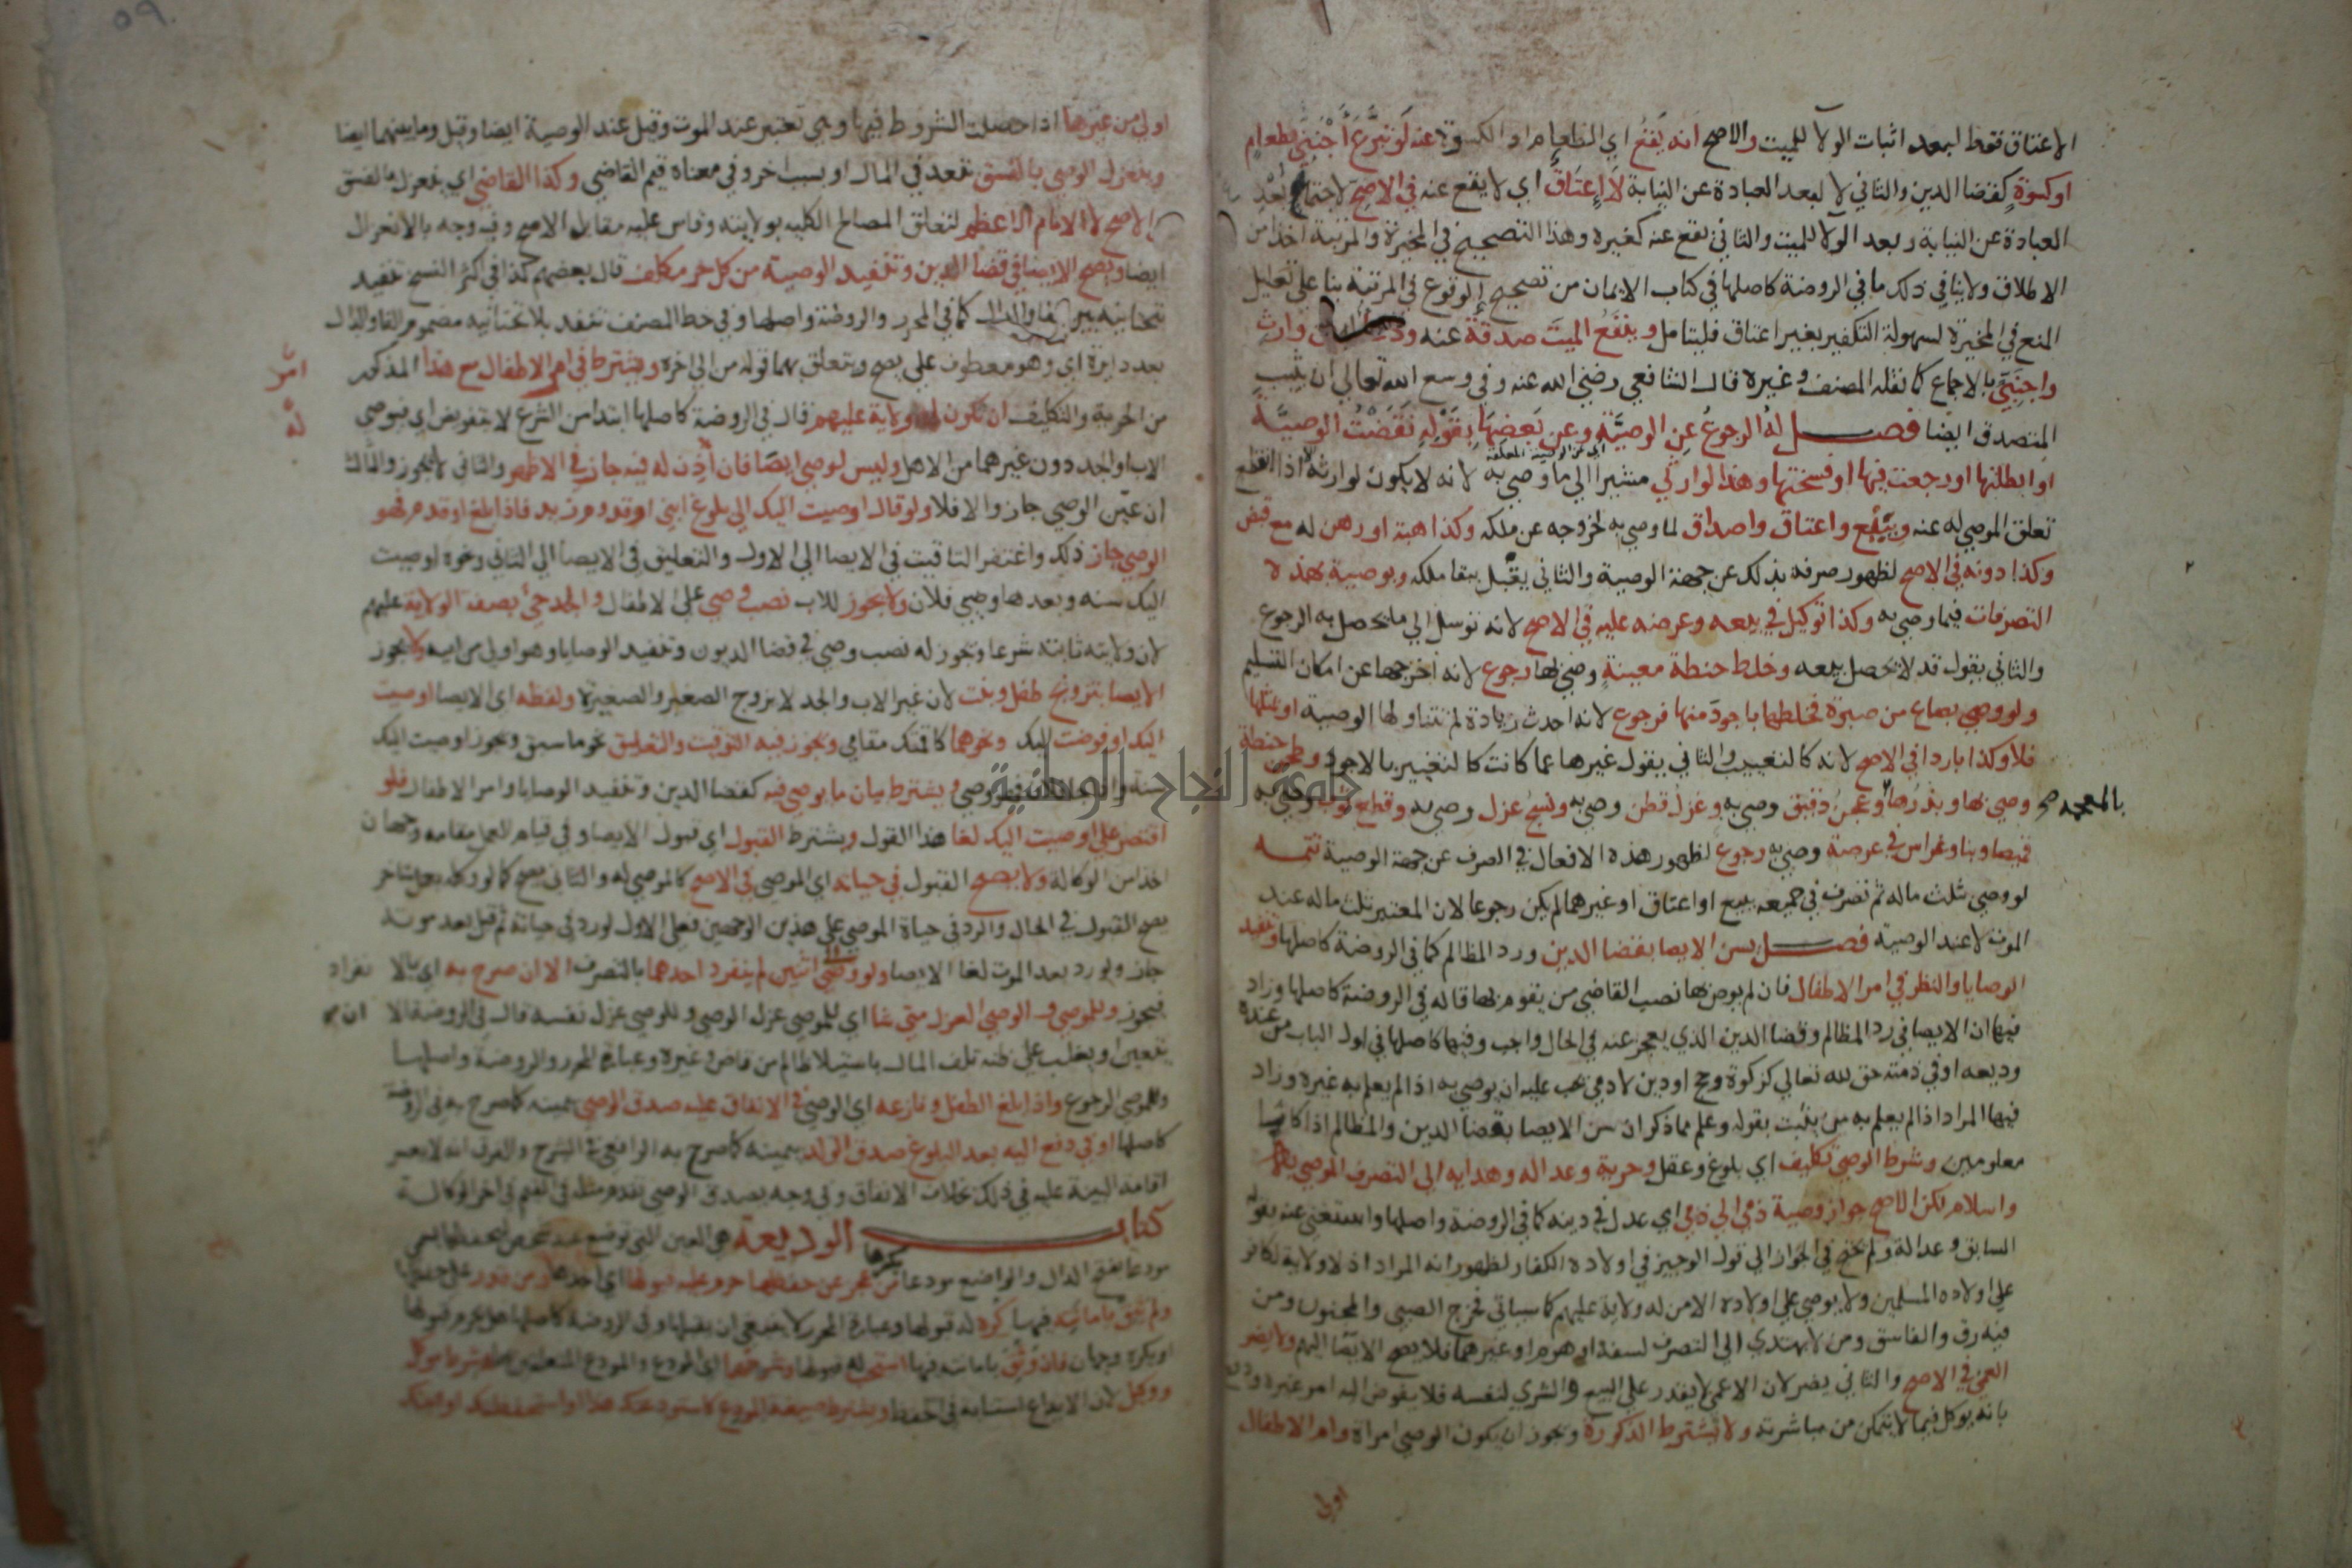 الاعتاق فقط لبعد اثبات الولا للميت والاصح انه يقع اي الطعام او الكسوة عنه لو تبرع اجنبي بطعام
او كسوة كقضا الدين والثاني لا لبعد العبادة عن النيابة لا اعتاق اي لا يقع عنه في الاصح لاجتماع بُعْدِ
العبادة عن النيابة وبعد الولا للميت والثاني يقع عنه كغيره وهذا التصحيح في المخيرة والمرتبة اخذا من
الاطلاق ولا ينافي ذلك ما في الروضة كاصلها في كتاب الايمان من تصحيح الوقوع في المرتبة بنا على تعليل
المنع في المخيرة لسهولة التكفير بغير اعتاق فليتامل وينفع الميت صدقة عنه ودعا من وارث
واجنبي بالاجماع كما نقله المصنف وغيره قال الشافعي رضي الله عنه وفي وسع الله تعالى ان يثيب
المتصدق ايضا فصل له الرجوع عن الوصية وعن بعضها بقوله نقضت الوصية
او ابطلتها او رجعت فيها او فسختها وهذا لوارثي مشيرا الى ما وصى به لانه لا يكون لوارثه الا اذا انقطع
تعلق الموصى له عنه وببيع واعتاق واصداق لما وصى به لخروجه عن ملكه وكذا هبة او رهن له مع قبض
وكذا دونه في الاصح لظهور صرفه بذلك عن جهة الوصية والثاني يقبل ببقا ملكه وبوصية بهذه
التصرفات فيما وصى به وكذا توكيل في بيعه وعرضه عليه في الاصح لانه توسل الى ما يحصل به الرجوع
والثاني يقول قد لا يحصل بيعه وخلط حنطة معينة وصى بها رجوع لانه اخرجها عن امكان التسليم
ولو وصى بصاع من صبرة فخلطها باجود منها فرجوع لانه احدث زيادة لم تتناولها الوصية او مثلها
فلا وكذا باردا في الاصح لانه كالتعييب والثاني يقول غيرها عما كانت كالتغيير بالاجود وطحن حنطة
وصى بها وبذرها وعجن دقيق وصى به وغزل قطن وصى به ونسج غزل وصى به وقطع ثوب وصى به
بالمعجمه صح
قميصا وبنا وغراس في عرصة وصى به رجوع لظهور هذه الافعال في الصرف عن جهة الوصية تتمه
لو وصى بثلث ماله ثم تصرف في جميعه ببيع او اعتاق او غيرهما لم يكن رجوعا لان المعتبر ثلث ماله عند
الموت لا عند الوصية فصل يسن الايصا بقضا الدين ورد المظالم كما في الروضة كاصلها وتنفيذ
الوصايا والنظر في امر الاطفال فان لم يوص بها نصب القاضي من يقوم بها قاله في الروضة كاصلها وزاد
فيها ان الايصا في رد المظالم وقضا الدين الذي يعجز عنه في الحال واجب وفيها كاصلها في اول الباب من عنده
وديعه او في ذمته حق لله تعالى كزكوة وحج او دين لادمي يجب عليه ان يوصي به اذا لم يعلم به غيره وزاد
فيها المراد اذا لم يعلم به من يثبت بقوله وعلم مما ذكر ان سن الايصا بقضا الدين والمظالم اذا كانا
معلومين وشرط الوصي تكليف اي بلوغ وعقل وحرية وعداله وهدايه الى التصرف الموصى به
واسلام لكن الاصح جواز وصية ذمي الى ذمي اي عدل في دينه كما في الروضة واصلها واستغنى عنه بقوله
السابق وعدالة ولم يحتج في الجواز الى قول الوجيز في اولاده الكفار لظهور انه المراد اذ لا ولاية لكافر
على اولاده المسلمين ولا يوصي على اولاده الا من له ولاية عليهم كما سياتي فخرج الصبي والمجنون ومن
فيه رق والفاسق ومن لا يهتدي الى التصرف لسفه او هرم او غيرهما فلا يصح الايصا اليهم ولا يضر
العمى في الاصح والثاني يضر لان الاعمى لا يقدر على البيع والشرى لنفسه فلا يفوض اليه امر غيره
بانه يوكل فيما لا يتمكن من مباشرته ولا تشترط الذكورة ويجوز ان يكون الوصي امراة وام الاطفال
اولى
اولى من غيرها اذا حصلت الشروط فيها وهي تعتبر عند الموت وقيل عند الوصية ايضا وقيل وما بينهما ايضا
وينعزل الوصي بالفسق بتعد في المال او بسبب اخر وفي معناه قيم القاضي وكذا القاضي اي ينعزل بالفسق
في الاصح لا الامام الاعظم لتعلق المصالح الكلية بولايته وقاس عليه مقابل الاصح وفيه وجه بالانعزال
ايضا ويصح الايصا في قضا الدين وتنفيذ الوصية من كل حر مكلف قال بعضهم كذا في اكثر النسخ تنفيذ
بتحتانية بين الفا والذال كما في المحرر والروضة واصلها وفي خط المصنف تنفذ بلا تحتانيه مضموم الفا والذال
بعد دايرة اي وهو معطوف على يصح ويتعلق بهما قوله من الى اخره ويشترط في امر الاطفال مع هذا المذكور
امر
من الحرية والتكليف ان تكون له ولاية عليهم قال في الروضة كاصلها ابتدا من الشرع لا بتفويض اي فيوصي
له
الاب والجد دون غيرهما من الاهل وليس لوصي ايصا فان اذن له فيه جاز في الاظهر والثاني لا يجوز والثالث
ان عين الوصي جاز والا فلا ولو قال اوصيت اليك الى بلوغ ابني او قدوم زيد فاذا بلغ او قدم فهو
الوصي جاز ذلك واغتفر التاقيت في الايصا الى الاول والتعليق في الايصا الى الثاني ونحوه اوصيت
اليك سنه وبعدها وصيي فلان ولا يجوز للاب نصب وصي على الاطفال والجد حي بصفة الولاية عليهم
لان ولايته ثابتة شرعا ويجوز له نصب وصي في قضا الديون وتنفيذ الوصايا وهو اولى من ابيه ولا يجوز
الايصا بتزويج طفل وبنت لان غير الاب والجد لا يزوج الصغير والصغيرة ولفظه اي الايصا اوصيت
اليك او فوضت اليك ونحوهما كاقمتك مقامي ويجوز فيه التوقيت والتعليق نحو ما سبق ويجوز اوصيت اليك
وصي ويشترط بيان ما يوصي فيه كقضا الدين وتنفيذ الوصايا وامر الاطفال فلو
اقتصر على اوصيت اليك لغا هذا القول ويشترط القبول اي قبول الايصا وفي قيام العمل مقامه وجهان
اخذا من الوكالة ولا يصح القبول في حياته اي الموصي في الاصح كالموصى له والثاني يصح كما لو وكله بعمل يتاخر
يصح القبول في الحال والرد في حياة الموصي على هذين الوجهين فعلى الاول لو رد في حياته ثم قبل بعد موته
جاز ولو رد بعد الموت لغا الايصا ولو وصى اثنين لم ينفرد احدهما بالتصرف الا ان صرح به اي بالانفراد
فيجوز وللموصي والوصي العزل متى شا اي للموصي عزل الوصي وللوصي عزل نفسه قال في الروضة الا ان
يتعين او يغلب على ظنه تلف المال باستيلا ظالم من قاض وغيره وعبارة المحرر والروضة واصلها
وللموصي الرجوع واذا بلغ الطفل ونازعه اي الوصي في الانفاق عليه صدق الوصي بيمينه كما صرح به في الروضة
كاصلها او في دفع اليه بعد البلوغ صدق الولد بيمينه كما صرح به الرافعي في الشرح والفرق انه لا يعسر
اقامة البينة عليه في ذلك بخلاف الانفاق وفي وجه يصدق الوصي تقدم مثله في القيم في اخر الوكالة
كتاب الوديعة هي العين التي توضع عند شخص ليحفظها تسمى
مودعا بفتح الدال والواضع مودعا بكسرها من عجز عن حفظها حرم عليه قبولها اي اخذها ومن قدر على حفظها
ولم يثق بامانته فيها كره له قبولها وعبارة المحرر لا ينبغي ان يقبلها وفي الروضة كاصلها هل يحرم قبولها
او يكره وجهان فان وثق بامانته فيها استحب له قبولها وشرطهما اي المودع والمودع شرط موكل
ووكيل لان الايداع استنابة في الحفظ ويشترط صيغة المودع كاستودعتك هذا او استحفظتك او انبتك